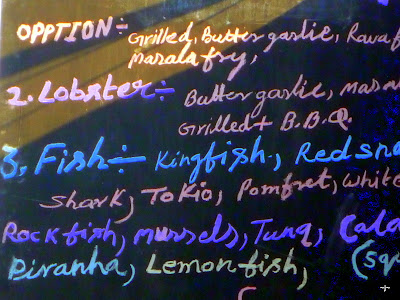 OPPTION÷ Grilled, Butter garlic, Rava f
Masala fry,
2. Lobster÷ Butter garlic, Masa
Grilled + B.B.Q.
3. Fish÷ Kingfish, Red sna
Shark, Tokio, Pomfret, White
Rockfish, mussels, Tuna, Cala
Piranha, Lemonfish, (sq